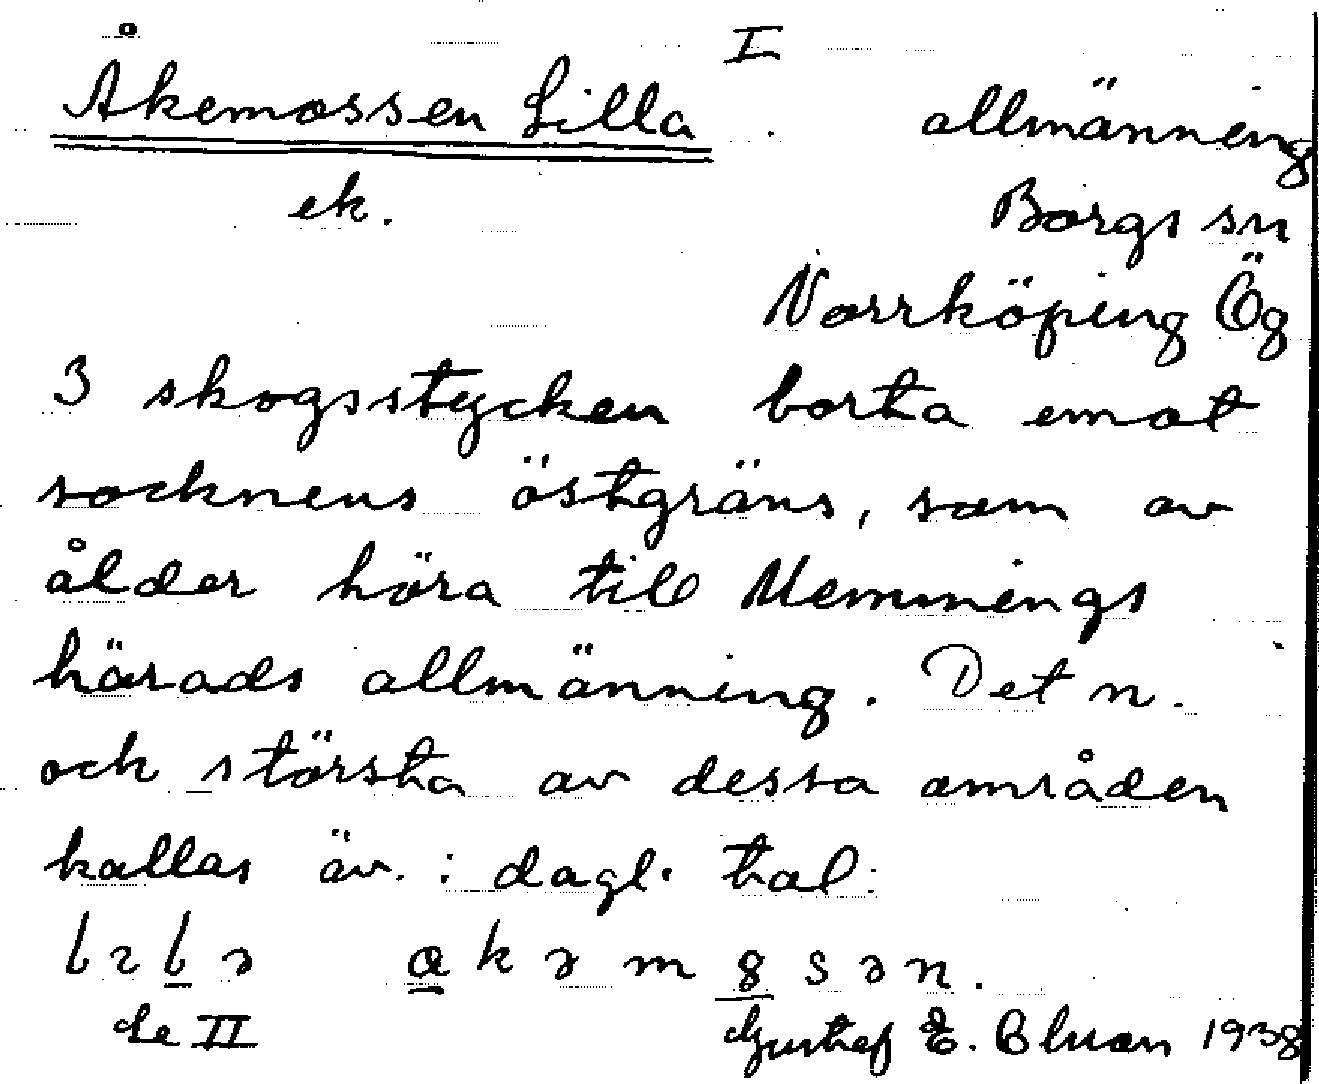 I
Åkemossen Lilla
allmänning
ek.
Borgs sn
Norrköping Ög
3 skogsstycken borta emot
socknens östgräns, som av
ålder höra till Memmings
härads allmänning. Det n.
och största av dessa områden
kallas äv. i dagl. tal:
Se II
Gustaf E. Bluan 1938